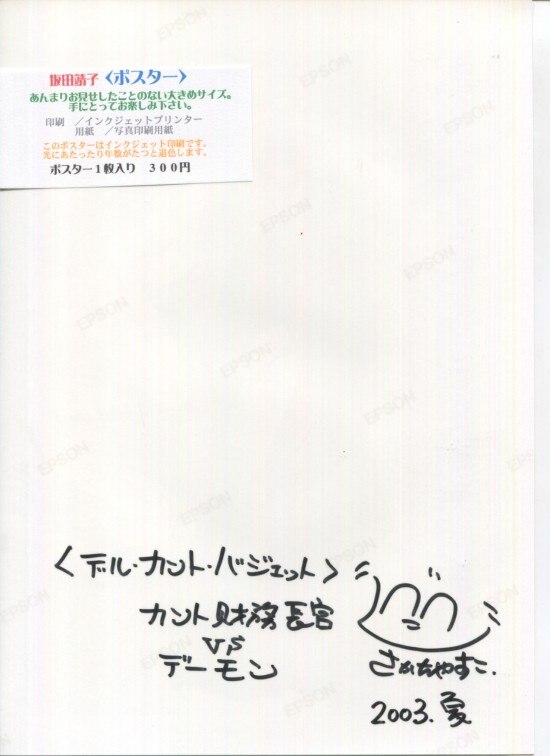 坂田靖子〈ポスター〉
あんまりお見せしたことのない大きめサイズ。
手にとってお楽しみ下さい。
印刷　／インクジェットプリンター
用紙　／写真印刷用紙
このポスターはインクジェット印刷です。
光にあたったり年数がたつと退色します。
ポスター１枚入り　３００円
EPSON
EPSON
EPSON
EPSON
EPSON
EPSON
EPSON
EPSON
EPSON
EPSON
EPSON
<デル・カント・バジェット>
カント財務長官
VS
デーモン
さかたやすこ.
2003.夏